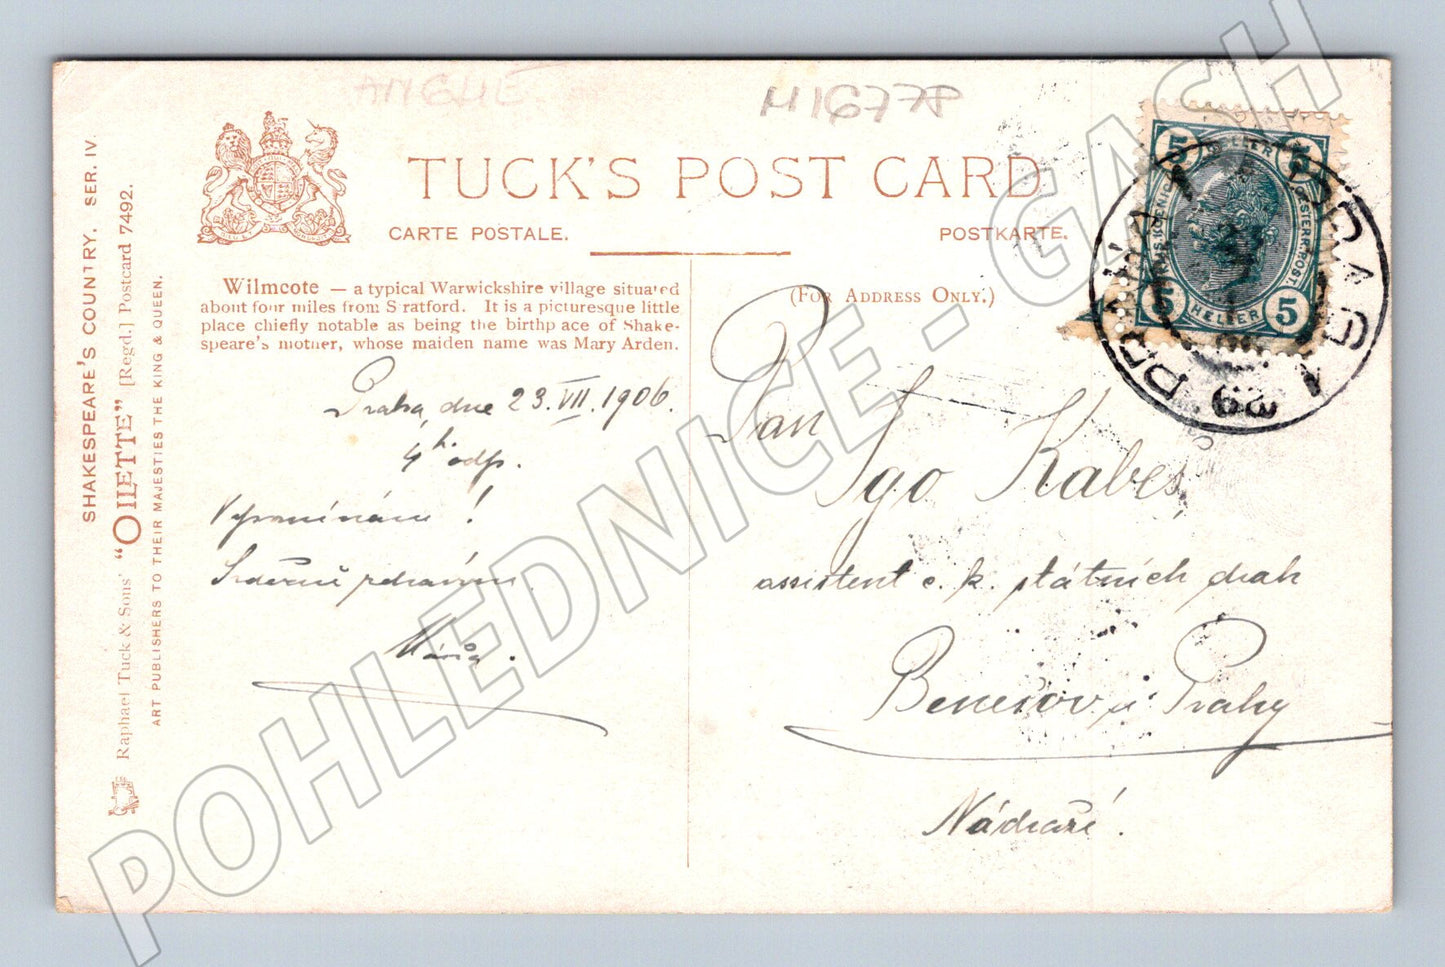 ANGLIE
M16778
TUCK'S POST CARD
CARTE POSTALE.
POSTKARTE.
(For Address Only.)
Wilmcote — a typical Warwickshire village situated
about four miles from Stratford. It is a picturesque little
place chiefly notable as being the birthplace of Shake-
speare's mother, whose maiden name was Mary Arden.
Praha, dne 23. VII. 1906.
4 h. odp.
Vzpomínám!
Srdečně zdravím
Máňa.
Pan
Igo Kabeš,
assistent c. k. státních drah
Benešov u Prahy
Nádraží.
SHAKESPEARE'S COUNTRY. SER. IV.
Raphael Tuck & Sons' "OILETTE" [Regd.] Postcard 7492.
ART PUBLISHERS TO THEIR MAJESTIES THE KING & QUEEN.
5 HELLER 5
5 HELLER 5
PRAHA 1 PRAG 1
POHLEDNICE - GASH